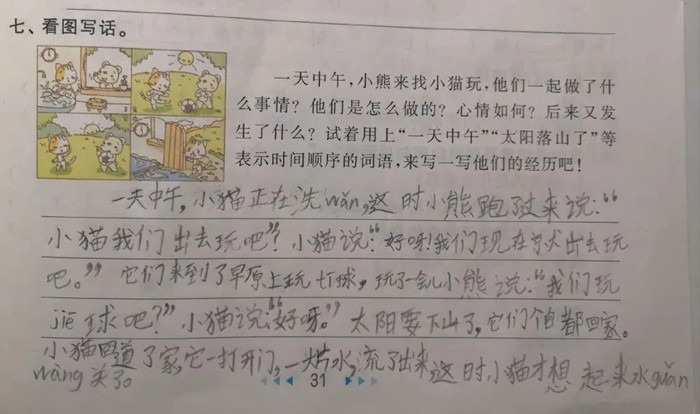 七、看图写话。
一天中午,小熊来找小猫玩,他们一起做了什
么事情? 他们是怎么做的? 心情如何? 后来又发
生了什么? 试着用上“一天中午”“太阳落山了”等
表示时间顺序的词语,来写一写他们的经历吧!
一天中午,小猫正在洗wǎn,这时小熊跑过来说:“
小猫我们出去玩吧”? 小猫说:“好呀!我们现在就出去玩
吧。” 它们来到了草原上玩 球,玩了一会儿小熊说:“我们玩
jiē球吧?”小猫说:“好呀。”太阳要下山了,它们各自都回家。
小猫回道了家,它一打开门,一大片水,流了出来 这时,小猫才想起来水guǎn
wàng关了。
31